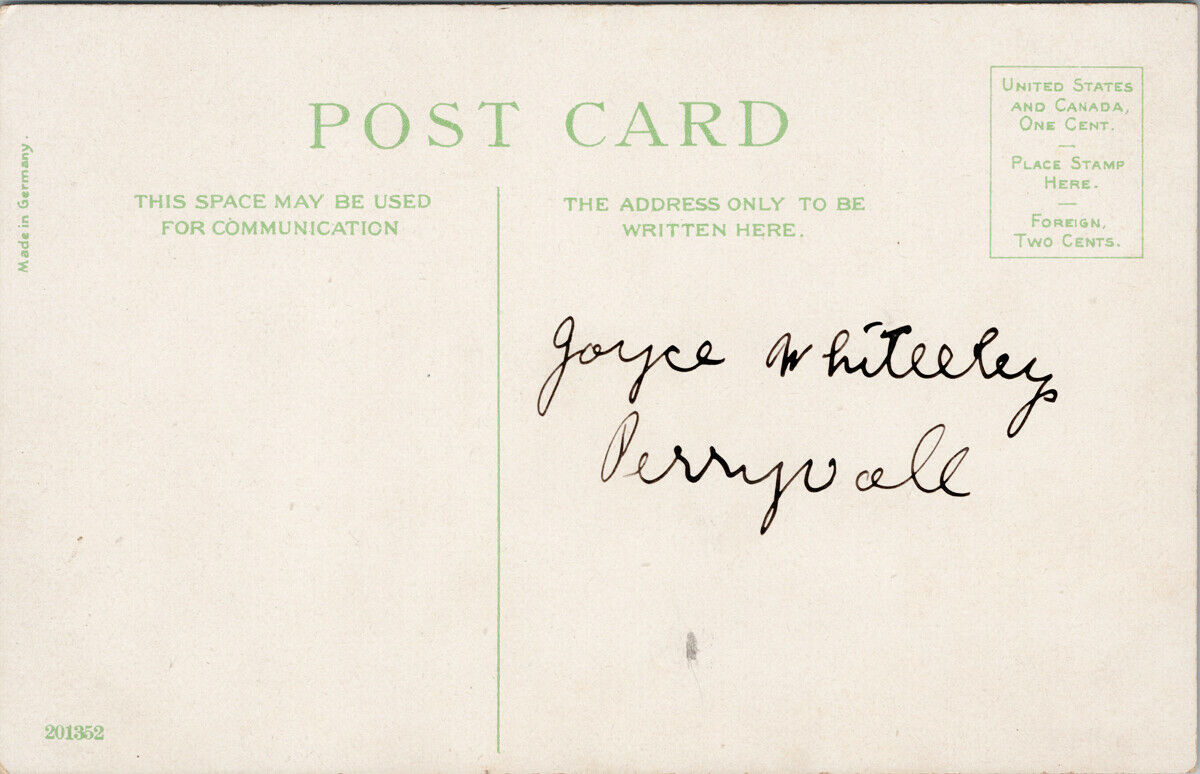 POST CARD
THIS SPACE MAY BE USED
FOR COMMUNICATION
THE ADDRESS ONLY TO BE
WRITTEN HERE.
UNITED STATES
AND CANADA,
ONE CENT.
—
PLACE STAMP
HERE.
—
FOREIGN,
TWO CENTS.
Made in Germany.
Joyce Whiteeley
Perryvall
201352